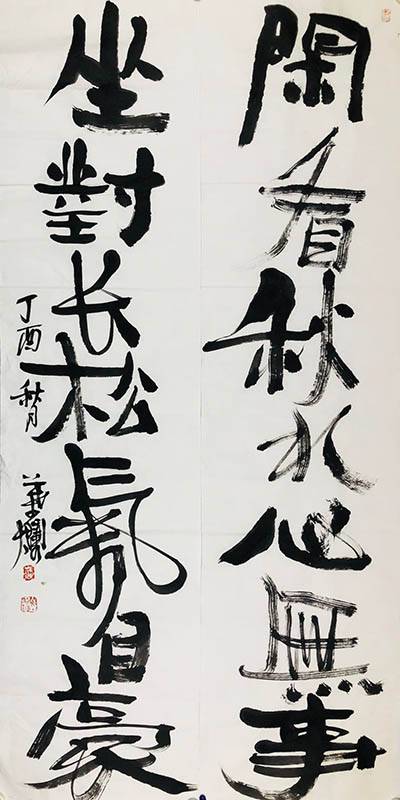 閑看秋水心無事
坐對长松氣自豪
丁酉秋月